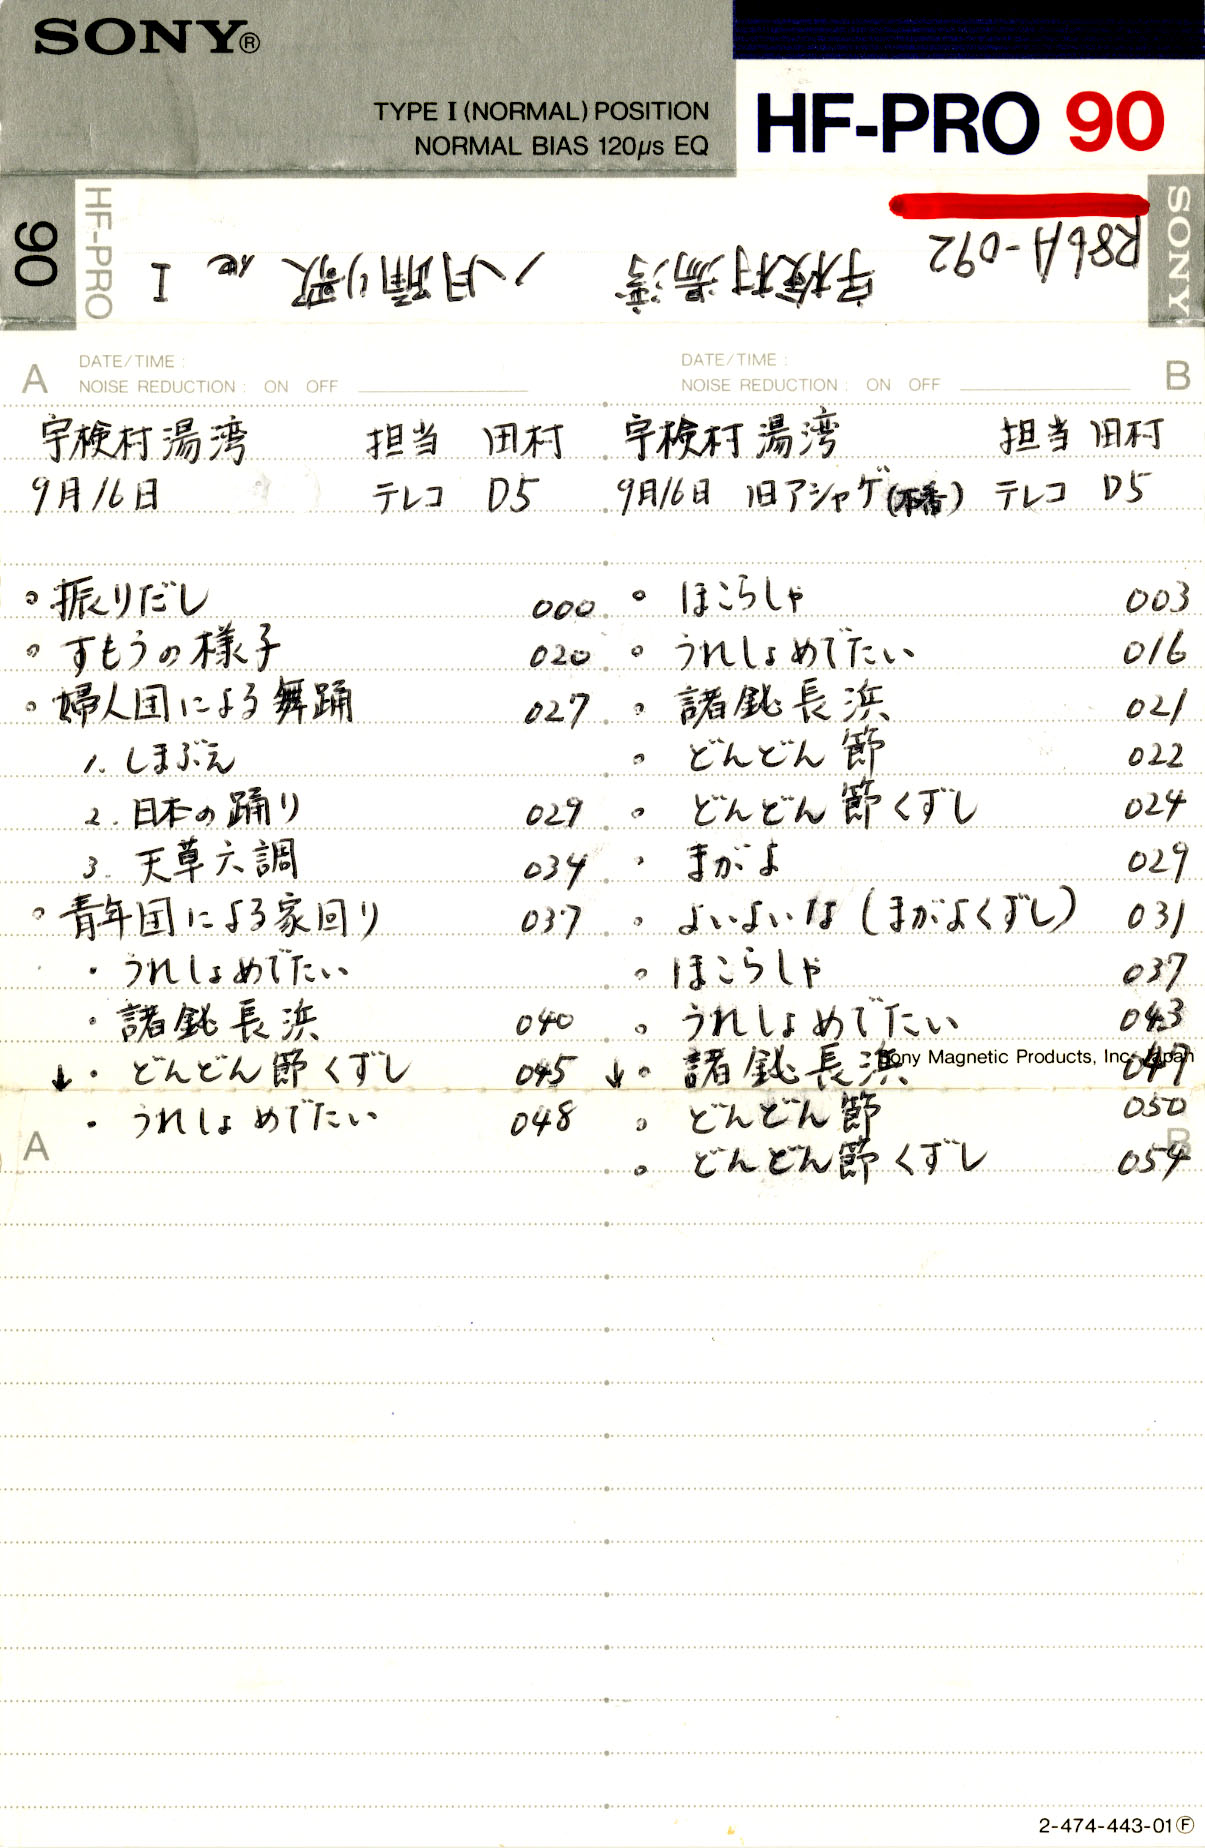 SONY®
TYPE I (NORMAL) POSITION
NORMAL BIAS 120μs EQ
HF-PRO 90
90
HF-PRO
R86A-092 宇検村湯湾 八月踊り歌 他 I
SONY
A DATE/TIME :
NOISE REDUCTION : ON OFF
宇検村湯湾 担当 田村
9月16日 テレコ D5
◦ 振りだし 000
◦ すもうの様子 020
◦ 婦人団による舞踊 027
1. しまぶえ
2. 日本の踊り 029
3. 天草六調 034
◦ 青年団による家回り 037
・ うれしょめでたい
・ 諸鈍長浜 040
↓・ どんどん節くずし 045
・ うれしょめでたい 048
A
DATE/TIME : B
NOISE REDUCTION : ON OFF
宇検村湯湾 担当 田村
9月16日 旧アシャゲ(本番) テレコ D5
◦ ほこらしゃ 003
◦ うれしょめでたい 016
◦ 諸鈍長浜 021
◦ どんどん節 022
◦ どんどん節くずし 024
◦ まがよ 029
◦ よいよいな (まがよくずし) 031
◦ ほこらしゃ 037
◦ うれしょめでたい 043
↓◦ 諸鈍長浜 047
Sony Magnetic Products, Inc. Japan
◦ どんどん節 050
B
◦ どんどん節くずし 054
2-474-443-01Ⓕ